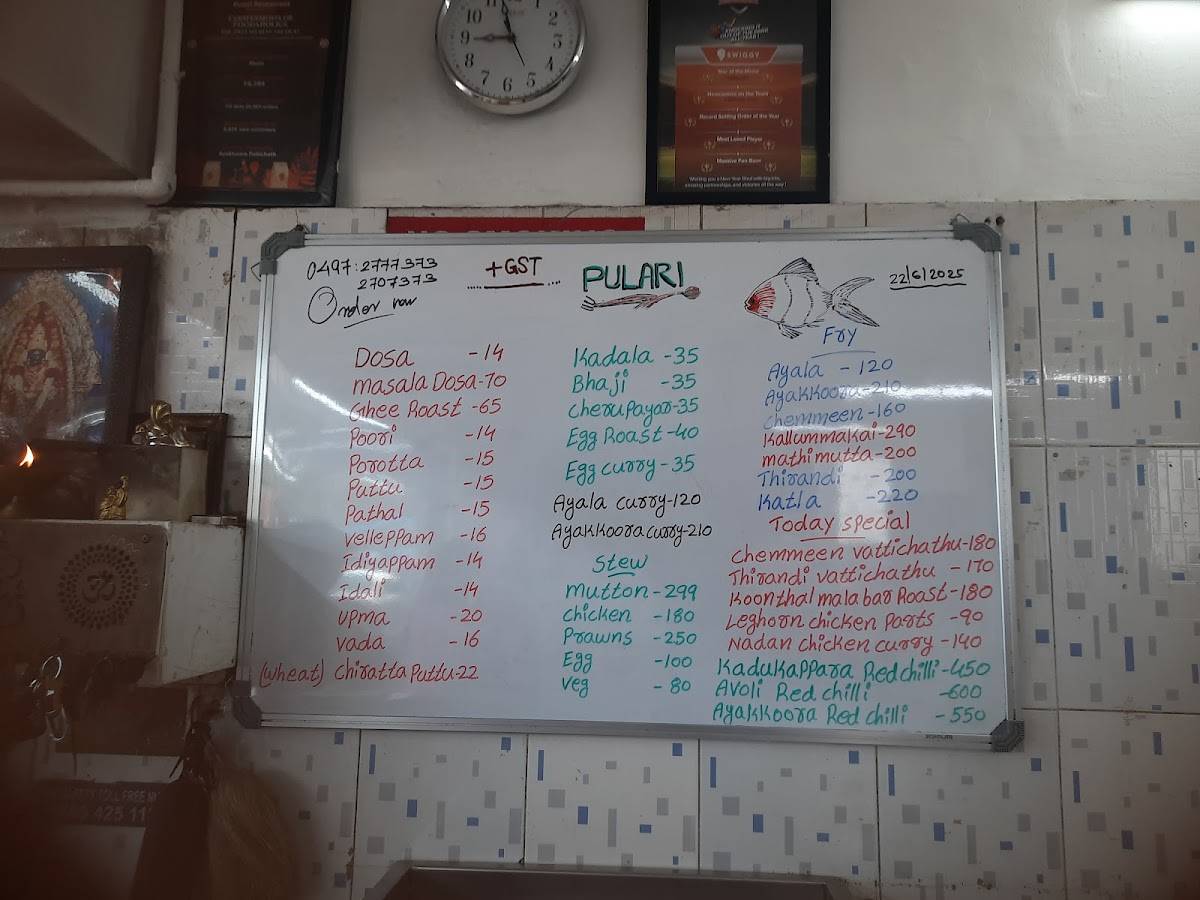 12
11
10
9
8
7
6
5
4
3
SWIGGY
Year of the Menu
Newcomers on the Team
Record Setting Order of the Year
Most Loved Player
Massive Fan Base
0497:2777373
2707373
Order now
+GST
PULARI
22/6/2025
Dosa - 14
masala Dosa - 70
Ghee Roast - 65
Poori - 14
Porotta - 15
Puttu - 15
Pathal - 15
velleppam - 16
Idiyappam - 14
Idali - 14
upma - 20
vada - 16
(wheat) Chiratta Puttu - 22
Kadala - 35
Bhaji - 35
cherupayar - 35
Egg Roast - 40
Egg curry - 35
Ayala curry - 120
Ayakkoora curry - 210
Stew
mutton - 299
chicken - 180
Prawns - 250
Egg - 100
veg - 80
Fry
Ayala - 120
Ayakkoora - 210
chemmeen - 160
Kallummakai - 290
mathi mutta - 200
Thirandi - 200
Katla - 220
Today special
Chemmeen vattichathu - 180
Thirandi vattichathu - 170
Koonthal malabar Roast - 180
Leghorn chicken Parts - 90
Nadan chicken curry - 140
Kadukappara Red chilli - 450
Avoli Red chilli - 600
Ayakkoora Red chilli - 550
TOLL FREE
425 11